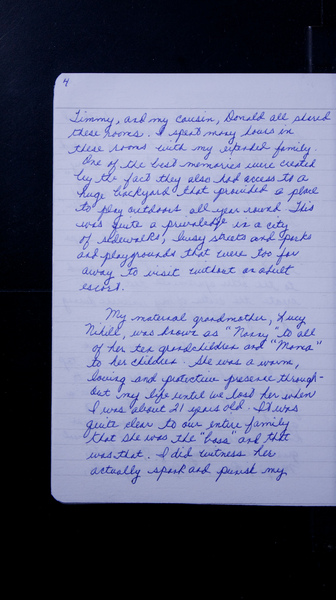 4
Timmy, and my cousin, Donald all shared
these rooms. I spent many hours in
these rooms with my extended family.
One of the best memories were created
by the fact they also had access to a
huge backyard that provided a place
to play outdoors all year round. This
was quite a priveledge in a city
of sidewalks, busy streets and parks
and playgrounds that were too far
away to visit without an adult
escort.
My maternal grandmother, Lucy
Nihill, was known as "Nanny" to all
of her ten grandchildren and "Mama"
to her children. She was a warm,
loving and protective presence through-
out my life until we lost her when
I was about 21 years old. It was
quite clear to our entire family
that she was the "boss" and that
was that. I did witness her
actually spank and punish my